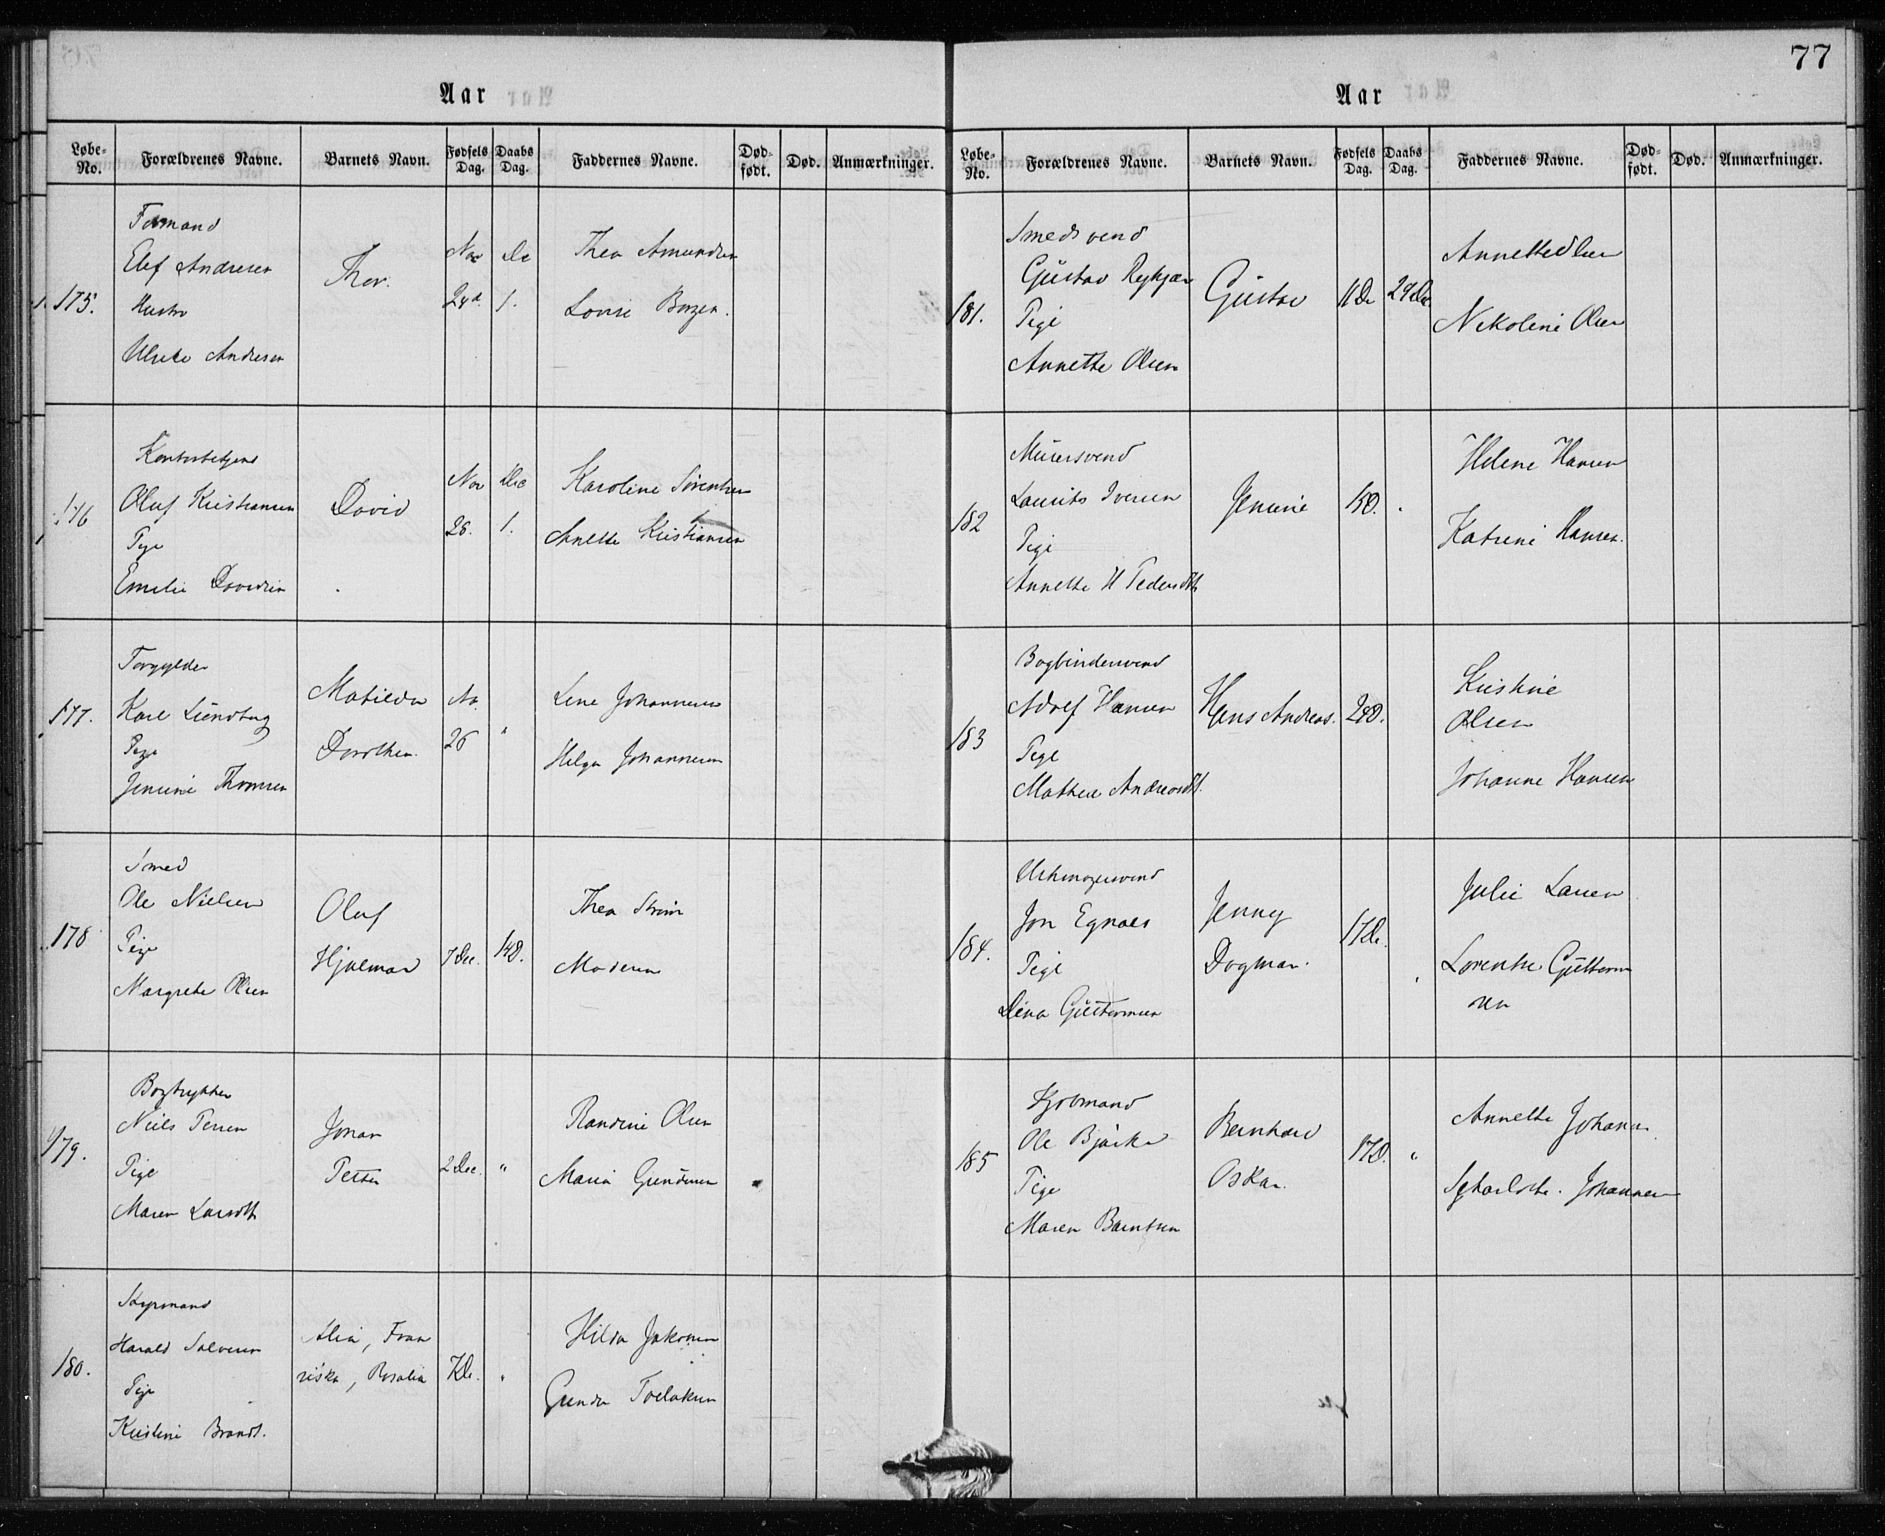 77
Aar
Løbe-No. Forældrenes Navne. Barnets Navn. Fødsels Dag. Daabs Dag. Faddernes Navne. Død-født. Død. Anmærkninger.
175. Formand
Elef Andresen
Hustro
Ulrike Andresen
Thor.
Nov 24d.
De 1.
Thea Amundsen
Lovise Borgen.
176 Kontorbetjent
Oluf Kristiansen
Pige
Emilie Davidsen
David
Nov 28.
Dec 1.
Karoline Sørensen
Anette Kristiansen
177. Forgylder
Karl Lundberg
Pige
Jensine Thomsen
Matilda
Dorothea
No. 26
"
Line Johannesen
Helga Johannesen
178 Smed
Ole Nielsen
Pige
Margrethe Olsen
Oluf
Hjalmar
7 Dec.
14D.
Thea Strøm
Moderen
179. Bogtrykker
Niels Jensen
Pige
Maren Larsdth
Johan
Petter
2 Dec.
"
Randine Olsen
Maria Gundersen
180. Styrmand
Harald Salvesen
Pige
Kristine Brandt.
Alia, Fran
ziska, Rosalia
7De.
"
Hilda Jakobsen
Gunda Torlaksen
Aar
Løbe-No. Forældrenes Navne. Barnets Navn. Fødsels Dag. Daabs Dag. Faddernes Navne. Død-født. Død. Anmærkninger.
181. Smedsvend
Gustav Rykjær
Pige
Annette Olsen
Gustav
11 De
29 De.
Annette Olsen
Nikoline Olsen
182 Murersvend
Laurits Iversen
Pige
Annette H Pedersdth
Jensine
15D.
"
Helene Hansen
Katrine Hansen.
183 Bogbindersvend
Adolf Hansen
Pige
Mathea Andreasdt.
Hans Andreas.
2D.
Kristine
Olsen
Johanne Hansen
184. Urhmagersvend
Jon Egnæs
Pige
Dina Guttormsen
Jenny
Dagmar.
17De.
"
Julie Larsen
Lorentse Guttorm
sen
185 Kjøbmand
Ole Bjørke
Pige
Maren Barntsen
Bernhard
Oskar.
17D.
"
Annette Johann.
Scharlotte. Johannesen